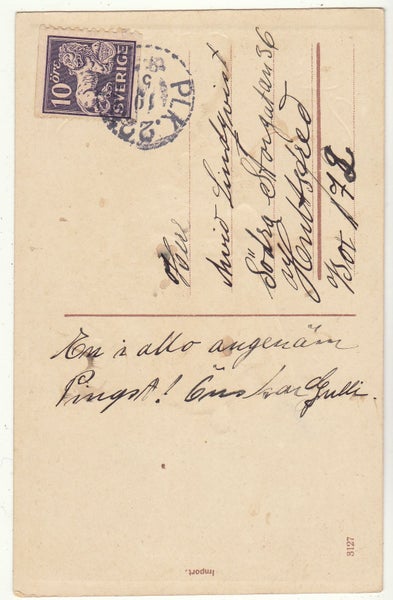 10 öre
SVERIGE
PLK. 2
Herr
Arvid Lindqvist
Södra Storgatan 36
Hultsfred
Box 172
En i allo angenäm
Pingst! Önskar Gulli.
3127
Import.